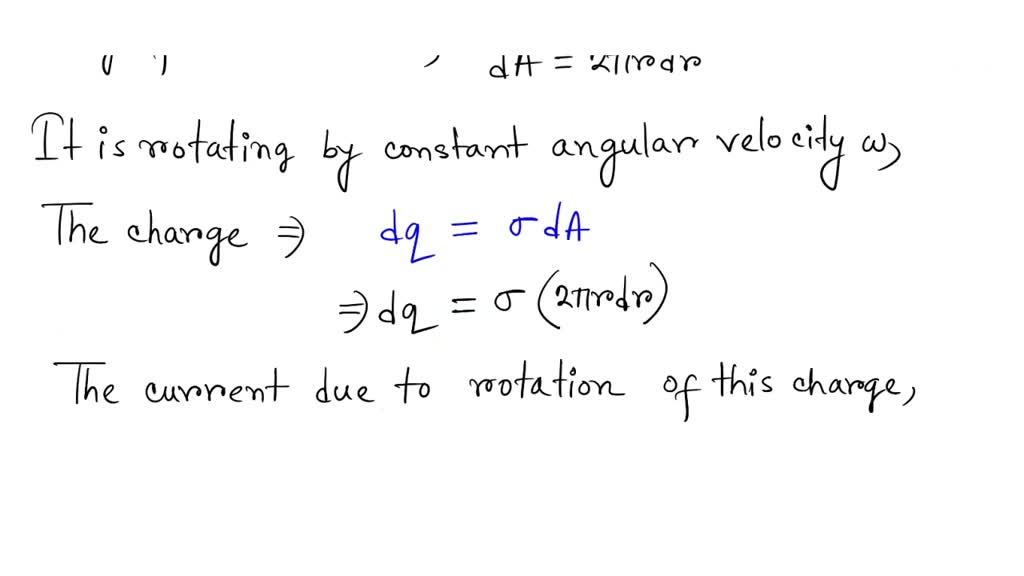 dA = 2πrdr
It is rotating by constant angular velocity ω,
The charge ⇒ dq = σdA
⇒ dq = σ(2πrdr)
The current due to rotation of this charge,